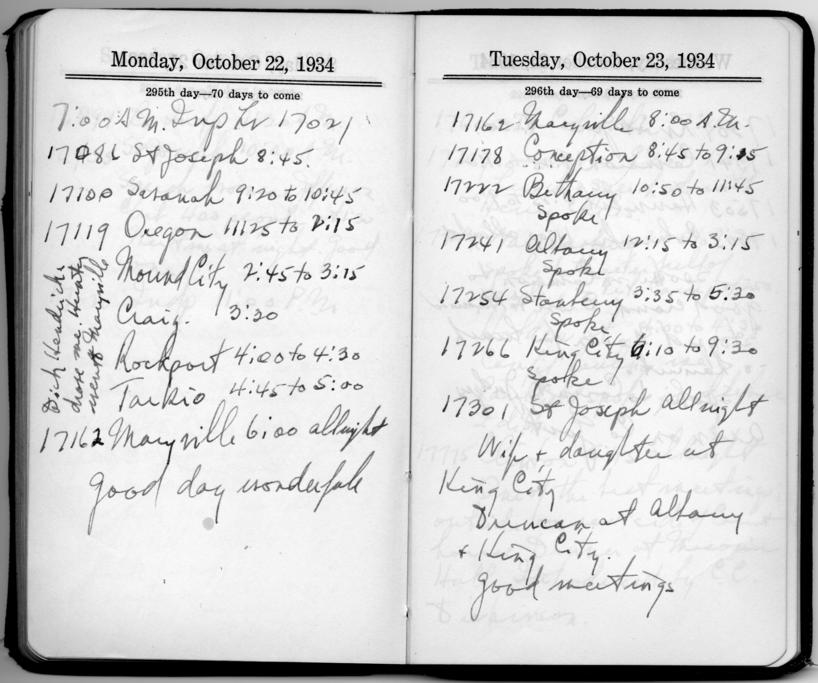 Monday, October 22, 1934
295th day—70 days to come
7:00 A M. Indp Lv 17021
17086 St Joseph 8:45.
17100 Savanah 9:20 to 10:45
17119 Oregon 11:25 to 2:15
Mound City 2:45 to 3:15
Craig. 3:20
Rockport 4:00 to 4:30
Tarkio 4:45 to 5:00
17162 Maryville 6:00 all night
good day wonderful
Dick Hendricks
drove me. Hunter
went to Maryville
Tuesday, October 23, 1934
296th day—69 days to come
17162 Maryville 8:00 A.M.
17178 Conception 8:45 to 9:15
17222 Bethany 10:50 to 11:45
Spoke
17241 Albany 12:15 to 3:15
Spoke
17254 Stanberry 3:35 to 5:30
Spoke
17266 King City 6:10 to 9:30
Spoke
17301 St Joseph All night
Wife + daughter at
King City
Duncan at Albany
+ King City.
good meetings